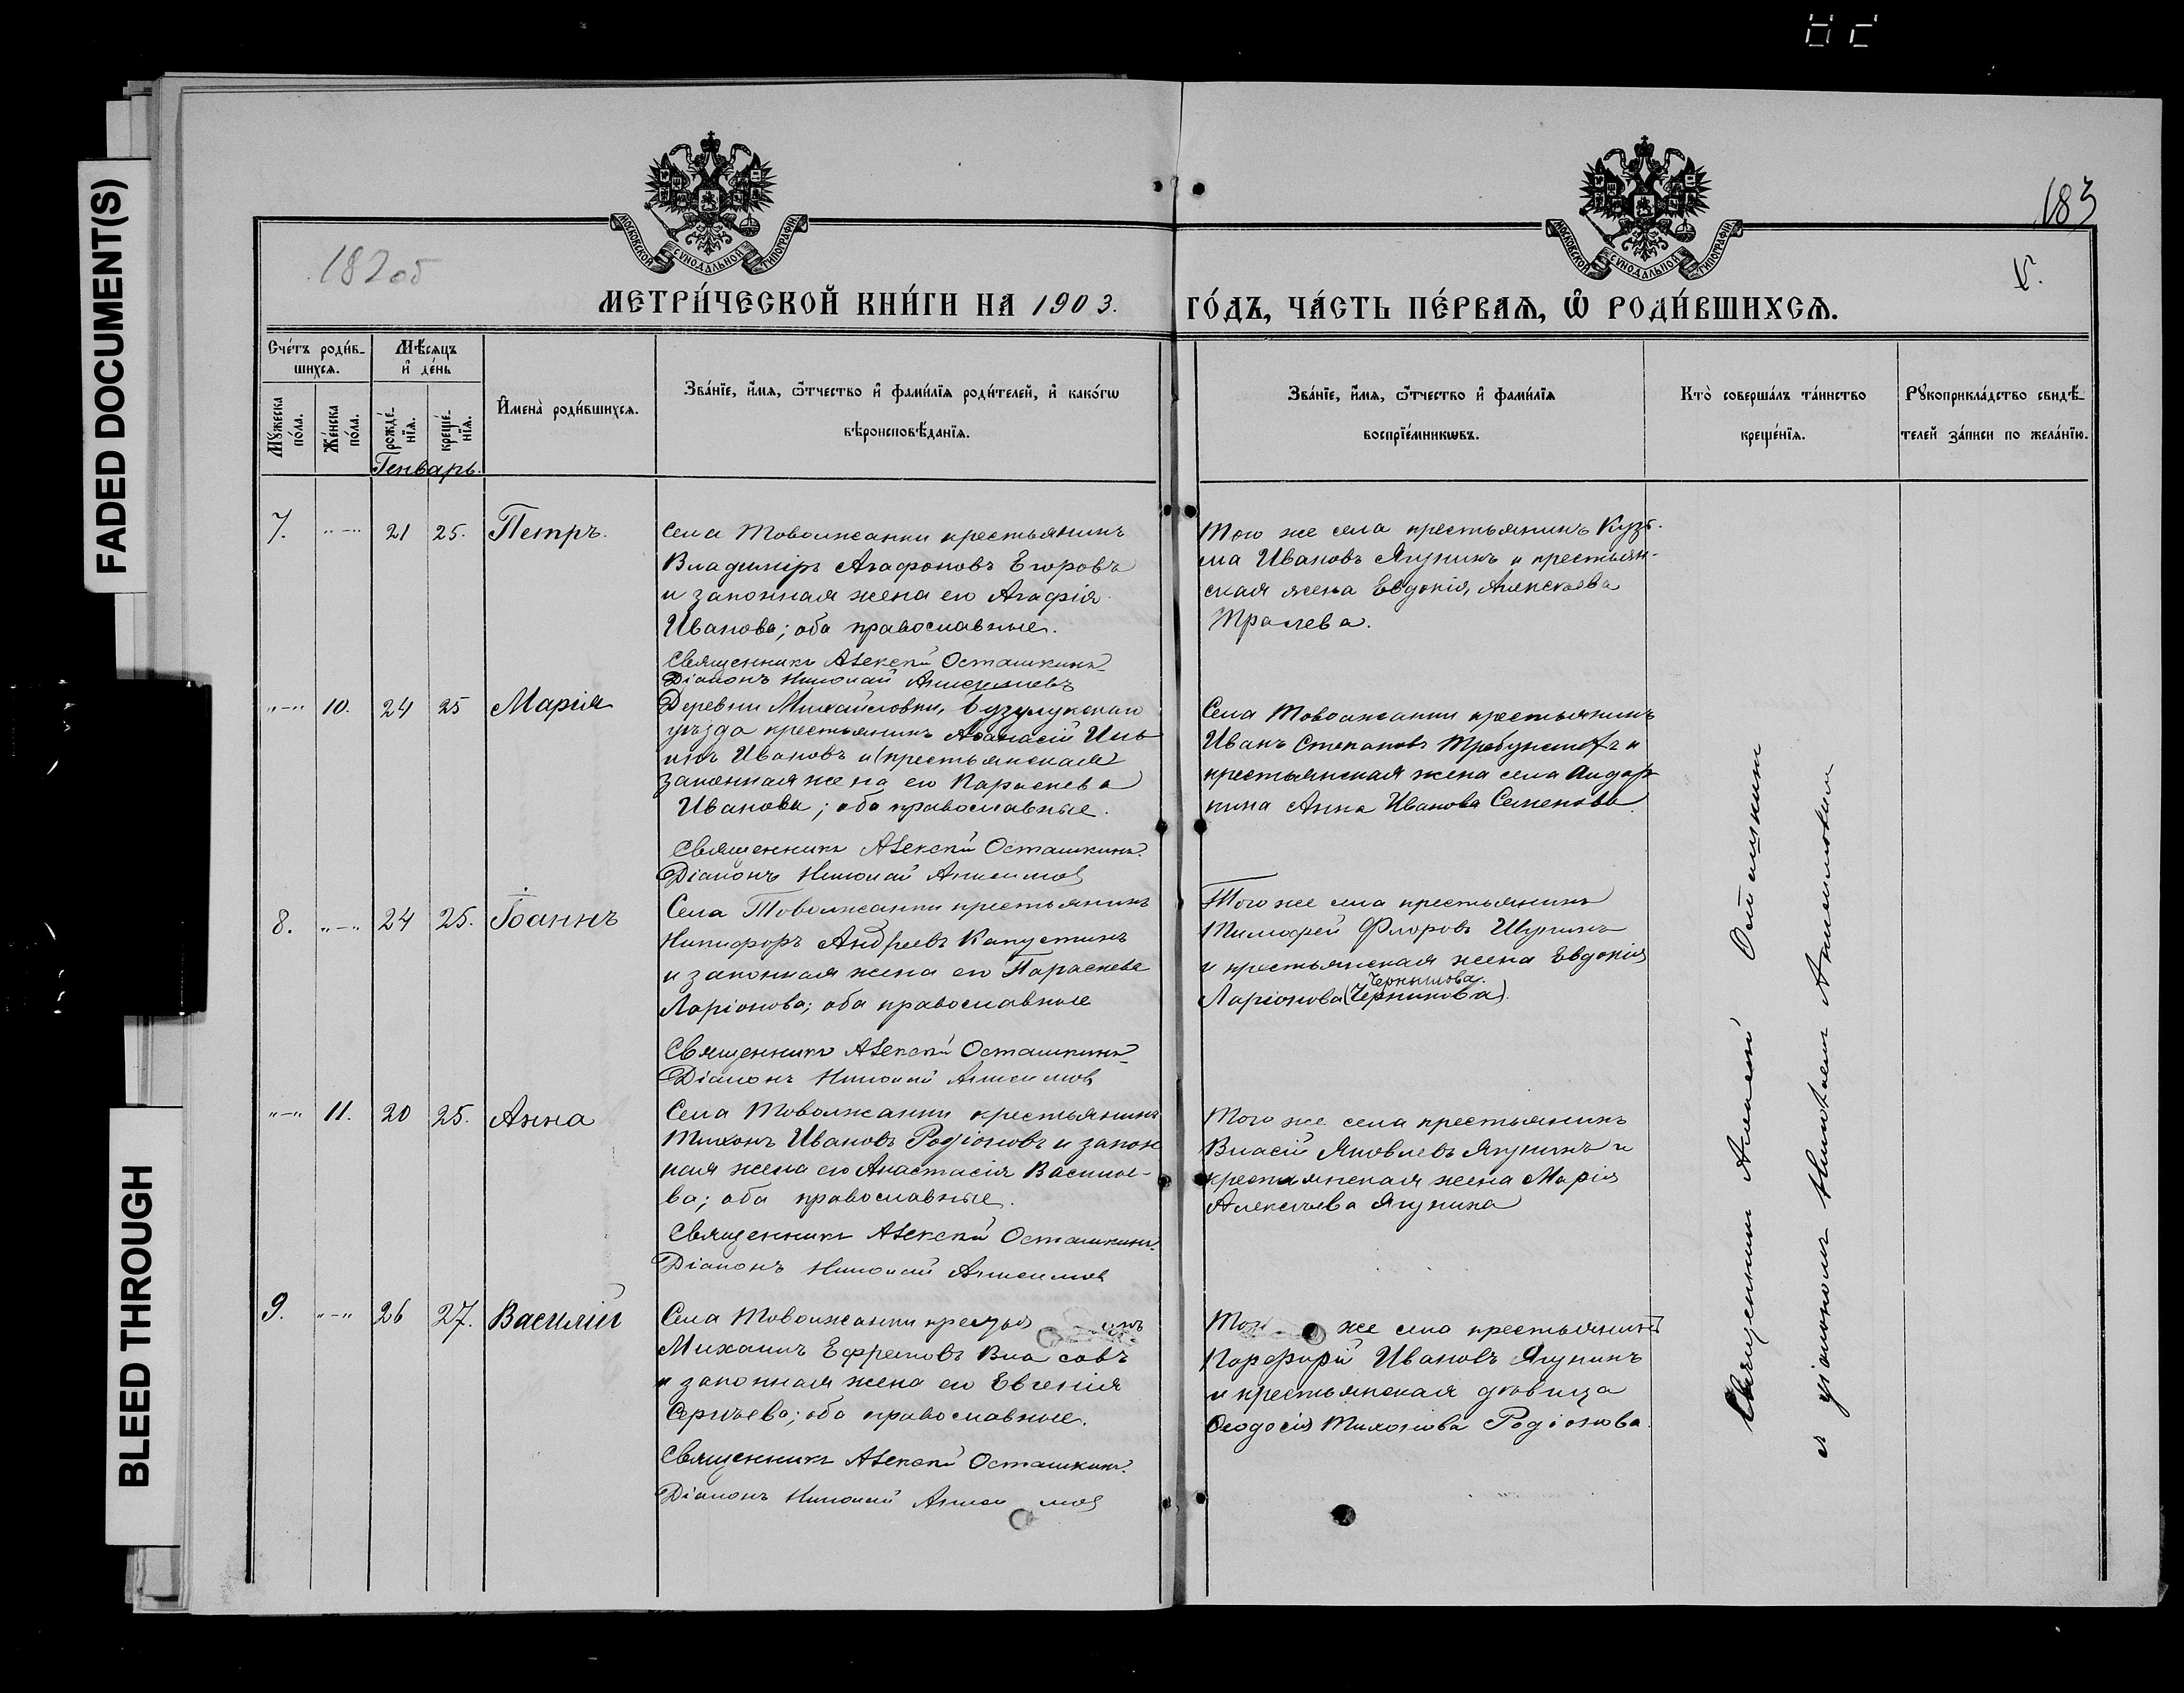 FADED DOCUMENT(S)
BLEED THROUGH
182об
183
V.
МОСКОВСКОЙ СѴНОДАЛЬНОЙ ТИПОГРАФІИ
МОСКОВСКОЙ СѴНОДАЛЬНОЙ ТИПОГРАФІИ
МЕТРИ́ЧЕСКОЙ КНИ́ГИ НА 1903. ГО́ДЪ, ЧА́СТЬ ПЕ́РВАѦ, Ѿ РОДИ́ВШИХСѦ.
Сче́тъ роди́в-
шихсѧ.
Мѣ́сѧцъ
и҆ де́нь
Мꙋ́жеска
по́ла.
Же́нска
по́ла.
рожде́-
нїѧ.
креще́-
нїѧ.
И҆мена̀ роди́вшихсѧ.
Зва́нїе, и҆́мѧ, ѻ҆́тчество и҆ фами́лїѧ роди́телей, и҆ како́гѡ
вѣроисповѣ́данїѧ.
Зва́нїе, и҆́мѧ, ѻ҆́тчество и҆ фами́лїѧ
воспрїе́мникѡвъ.
Кто̀ соверша́лъ та́инство
креще́нїѧ.
Рꙋкоприкла́дство свидѣ́-
телей за́писи по жела́нїю.
Генварь.
7. "–" 21 25. Петръ.
Села Товолжанки крестьянинъ
Владиміръ Агафоновъ Егоровъ
и законная жена его Агафія
Иванова; оба православные.
Священникъ Алексѣй Осташкинъ
Діаконъ Николай Анисимовъ
Того же села крестьянинъ Кузь-
ма Ивановъ Ягунинъ и крестьян-
ская жена Евдокія Алексѣева
"–" 10. 24 25 Марія
Деревни Михайловки, Бузулукскаго
уѣзда крестьянинъ Аѳанасій Иль
инъ Ивановъ и (крестьянская
законная жена его Параскева
Иванова; оба православные.
Священникъ Алексѣй Осташкинъ.
Діаконъ Николай Анисимов
Села Товолжанки крестьянинъ
Иванъ Степановъ и
крестьянская жена села
Анна Иванова Семенова.
8. "–" 24 25. Іоаннъ
Села Товолжанки крестьянинъ
Никифоръ Андреевъ Капустинъ
и законная жена его Параскева
Ларіонова; оба православные
Священникъ Алексѣй Осташкинъ
Діаконъ Николай Анисимов
Того же села крестьянинъ
Тимофей Флоровъ
и крестьянская жена Евдокія
Чернышова.
Ларіонова (Черникова).
"–" 11. 20 25. Анна
Села Товолжанки крестьянинъ
Тихонъ Ивановъ Родіоновъ и закон
ная жена его Анастасія Василье-
ва; оба православные.
Священникъ Алексѣй Осташкинъ.
Діаконъ Николай Анисимов
Того же села крестьянинъ
Власій Яковлевъ Ягунинъ и
крестьянская жена Марія
Алексѣева Ягунина
9. "–" 26 27. Василій
Села Товолжанки крестья инъ
Михаилъ Ефремовъ Власовъ
и законная жена его Евгенія
Сергѣева; оба православные.
Священникъ Алексѣй Осташкинъ.
Діаконъ Николай Анисимов
же села крестьянинъ
Порфирій Ивановъ Ягунинъ
и крестьянская дѣвица
Ѳеодосія Тихонова Родіонова.
Священникъ Алексѣй Осташкинъ
съ діакономъ Николаемъ Анисимовымъ